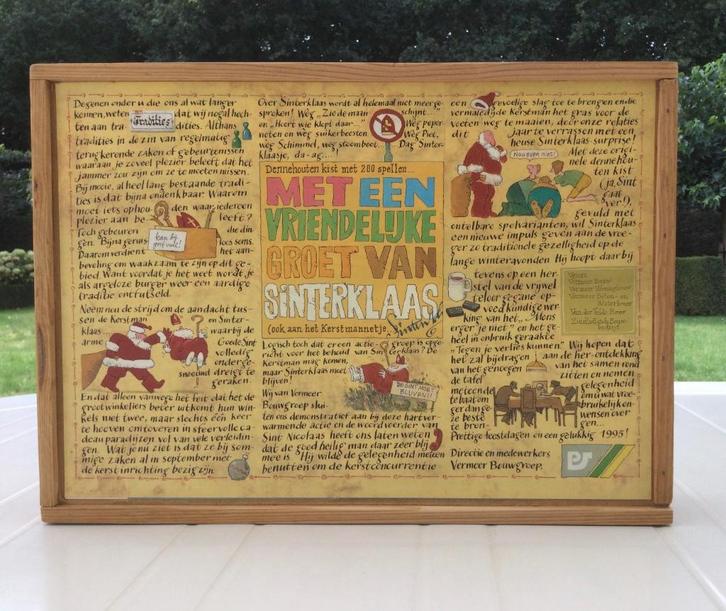 Degenen onder u die ons al wat langer
kennen, weten dat wij nogal hech-
ten aan tra- Tradities dities. Althans
tradities in de zin van regelmatig
terugkerende zaken of gebeurtenissen
waaraan je zoveel plezier beleeft dat het
jammer zou zijn om ze te moeten missen.
Bij mooie, al heel lang bestaande tradi-
ties is dat bijna ondenkbaar. Waarom
moet iets ophou- den waar iedereen
plezier aan be- leeft?
Toch gebeuren die din-
gen. Bijna geruis- loos soms.
Daarom verdient het aan-
beveling om waakzaam te zijn op dit ge-
bied. Want voordat je het weet wordt je
als argeloze burger weer een aardige
traditie ontfutseld.
Neem nou de strijd om de aandacht tus-
sen de Kerstman en Sinter-
klaas waarbij de
arme Goede Sint
volledig
onderge-
sneeuwd dreigt te
geraken.
En dat alleen vanwege het feit dat het de
grootwinkeliers beter uitkomt hun win-
kels met twee, maar slechts één keer
te hoeven omtoveren in sfeervolle ca-
deau paradijzen vol van vele verleidin-
gen. Wat je nu ziet is dat ze bij som-
mige zaken al in september met
de kerst inrichting bezig zijn.
Over Sinterklaas wordt al helemaal niet meer ge-
sproken! Weg "Zie de maan schijnt...
en "Hoort wie klopt daar..." Weg peper-
noten en weg suikerbeesten. Weg Piet,
weg Schimmel, weg stoomboot. Dag Sinter-
klaasje, da-ag....!
Dennehouten kist met 200 spellen...
MET EEN
VRIENDELIJKE
GROET VAN
SINTERKLAAS
(ook aan het Kerstmannetje)
Logisch toch dat er een actie- groep is opge-
richt voor het behoud van Sinterklaas! De
Kerstman mag komen,
maar Sinterklaas moet
blijven!
DE SINT MOET
BLIJVEN!
Wij van Vermeer
Bouwgroep slui-
ten ons demonstratief aan bij deze hartver-
warmende actie en de woordvoerder van
Sint Nicolaas heeft ons laten weten
dat de goed heilig man daar zeer blij
mee is. Hij wilde de gelegenheid meteen
benutten om de kerstconcurrentie
een gevoelige slag toe te brengen en die
vermaledijde Kerstman het gras voor de
voeten weg te maaien, door onze relaties
dit jaar te verrassen met een
heuse Sinterklaas-surprise!
Met deze origi-
nele dennehou-
ten kist
(ja, Sint
gaat
ver!),
gevuld met
ontelbare spelvarianten, wil Sinterklaas
een nieuwe impuls geven aan die vroe-
ger zo traditionele gezelligheid op de
lange winteravonden. Hij hoopt daar bij
tevens op een her-
stel van de vrijwel
teloor gegane op-
voedkundige wer-
king van het.. "Mens
erger je niet" en het ge-
heel in onbruik geraakte
"Tegen je verlies kunnen". Wij hopen dat
het zal bijdragen aan de her-ontdekking
van het genoegen van het samen rond
de tafel zitten en nemen
meteen de gelegenheid
te baat om u wat vroe-
ger dan ge- bruikelijk on-
ze beste wensen over
te bren- gen...
Prettige feestdagen en een gelukkig 1995!
Directie en medewerkers
Vermeer Bouwgroep.